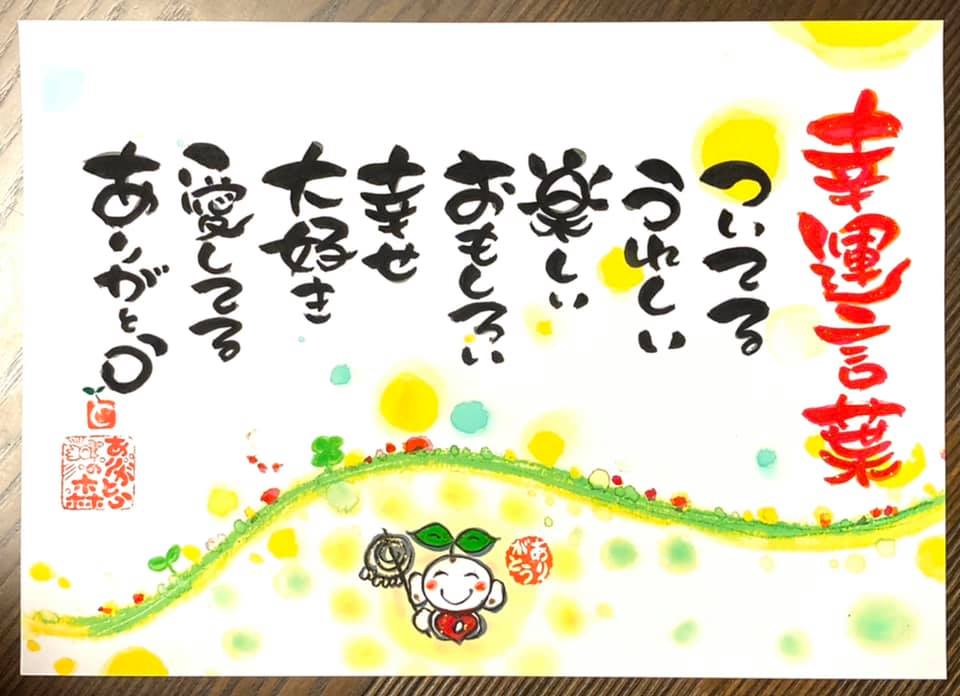 幸運言葉
ついてる
うれしい
楽しい
おもしろい
幸せ
大好き
愛してる
ありがとう
と
ありがとう
の森
ありがとう